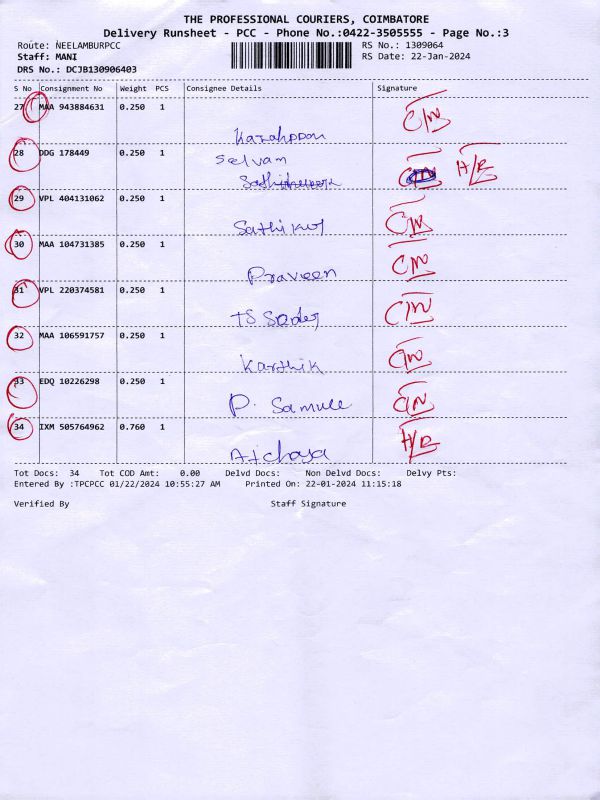 THE PROFESSIONAL COURIERS, COIMBATORE
Delivery Runsheet - PCC - Phone No.:0422-3505555 - Page No.:3
Route: NEELAMBURPCC RS No.: 1309064
Staff: MANI RS Date: 22-Jan-2024
DRS No.: DCJB130906403
S No Consignment No Weight PCS Consignee Details Signature
27 MAA 943884631 0.250 1
28 DDG 178449 0.250 1 Selvam H/R
29 VPL 404131062 0.250 1
30 MAA 104731385 0.250 1
Praveen
31 VPL 220374581 0.250 1
32 MAA 106591757 0.250 1
Karthik
33 EDQ 10226298 0.250 1
P. Samule
34 IXM 505764962 0.760 1 H/R
Tot Docs: 34 Tot COD Amt: 0.00 Delvd Docs: Non Delvd Docs: Delvy Pts:
Entered By :TPCPCC 01/22/2024 10:55:27 AM Printed On: 22-01-2024 11:15:18
Verified By Staff Signature